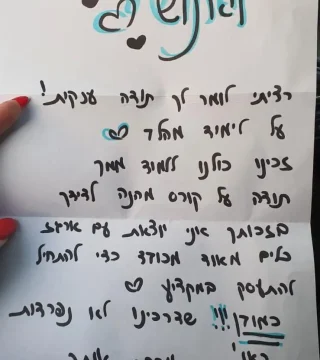 רציתי לומר לך תודה ענקית!
על לימוד מהלב
זכינו כולנו ללמוד ממך
תודה על קורס מהנה לצידך
בזכותך אני יוצאת עם ארגז
כלים מאוד מכובד כדי להתחיל
להתעסק במקצוע
כמובן!!! שדרכינו לא נפרדות